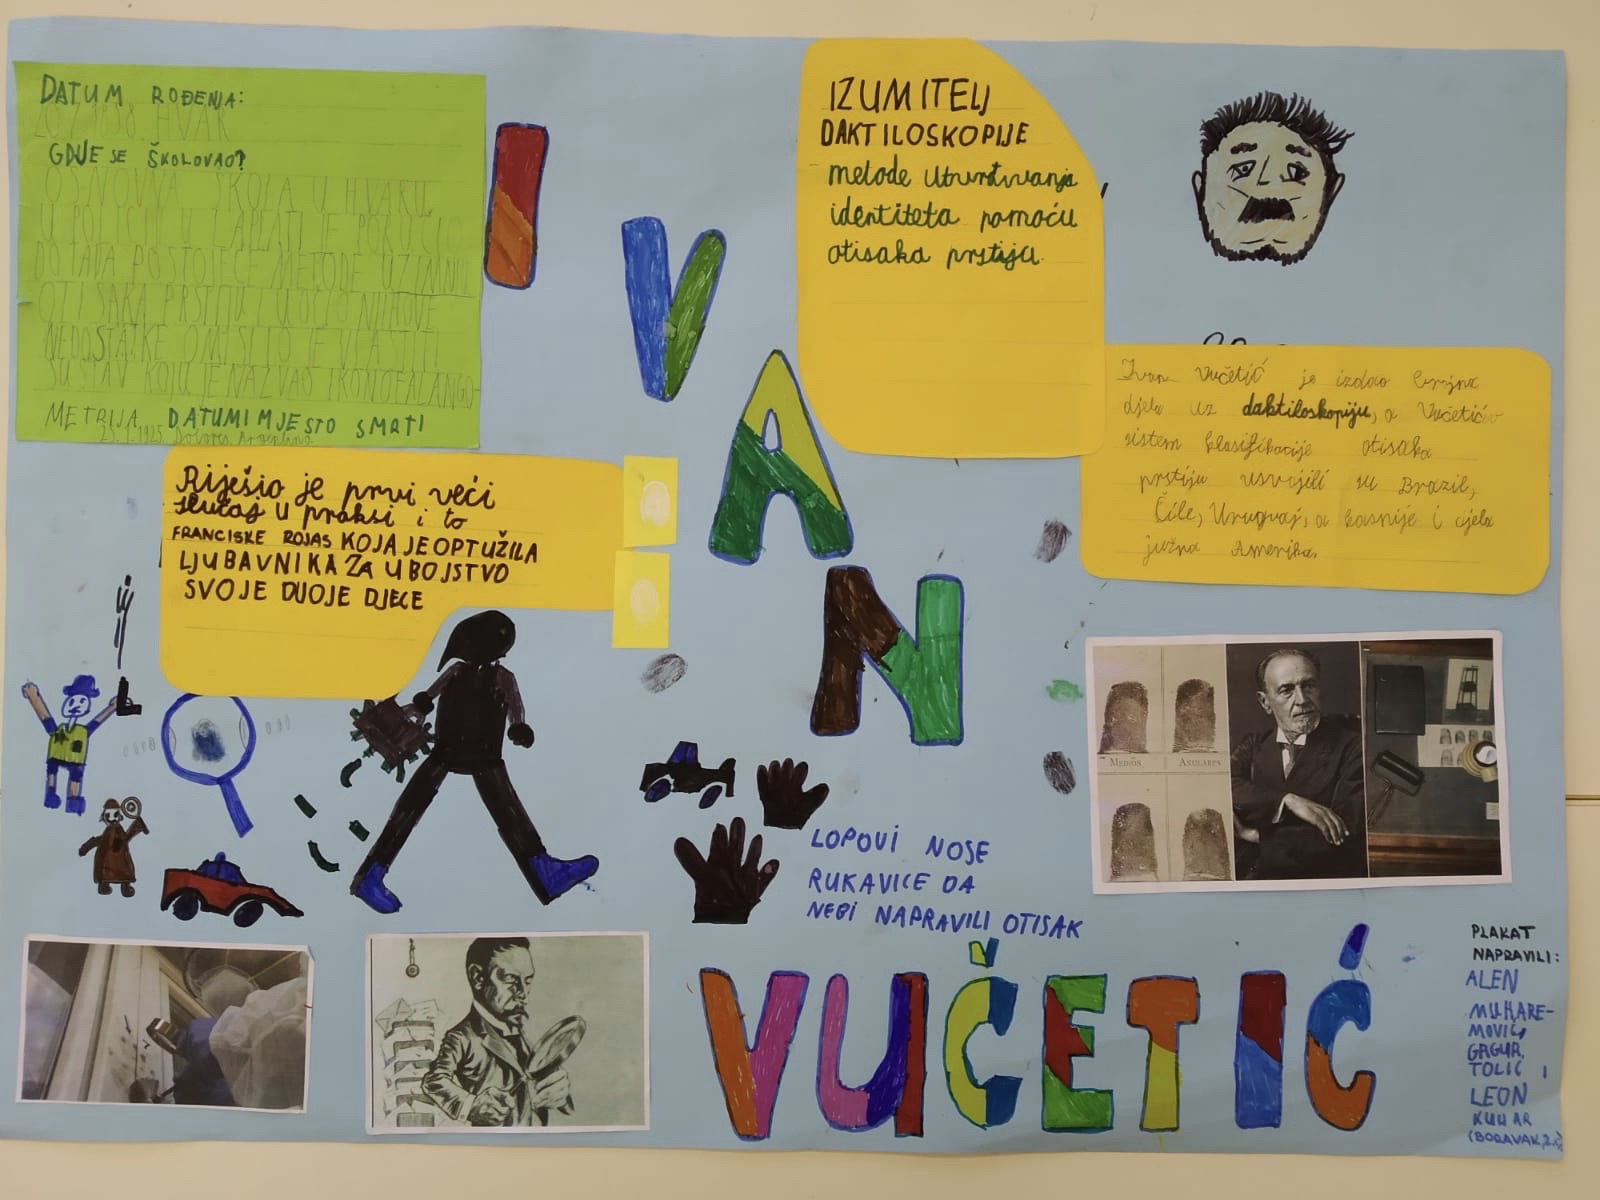 DATUM ROĐENJA:
20.7.1858 HVAR
GDJE SE ŠKOLOVAO?
OSNOVNA ŠKOLA U HVARU.
U POLICIJI LA PLATE JE PROUČIO
DO TADA POSTOJEĆE METODE UZIMANJA
OTISAKA PRSTIJU I UOČIO NJIHOVE
NEDOSTATKE OSMISLIO JE VLASTITI
SUSTAV KOJI JE NAZVAO IKONOFALANGO-
METRIJA. DATUM I MJESTO SMRTI
25.1.1925. Dolores, Argentina
I
V
A
N
IZUMITELJ
DAKTILOSKOPIJE
metode utvrđivanja
identiteta pomoću
otisaka prstiju.
Ivan Vučetić je izdao brojna
djela uz daktiloskopiju, a Vučetićev
sistem klasifikacije otisaka
prstiju usvojili su Brazil,
Čile, Urugvaj, a kasnije i cjela
južna Amerika.
Riješio je prvi veći
slučaj u praksi i to
FRANCISKE ROJAS KOJA JE OPTUŽILA
LJUBAVNIKA ZA UBOJSTVO
SVOJE DVOJE DJECE
MEDIOS ANULARES
LOPOVI NOSE
RUKAVICE DA
NEBI NAPRAVILI OTISAK
VUČETIĆ
PLAKAT
NAPRAVILI:
ALEN
MUHARE-
MOVIĆ,
GRGUR
TOLIĆ I
LEON
KUHAR
(BORAVAK,